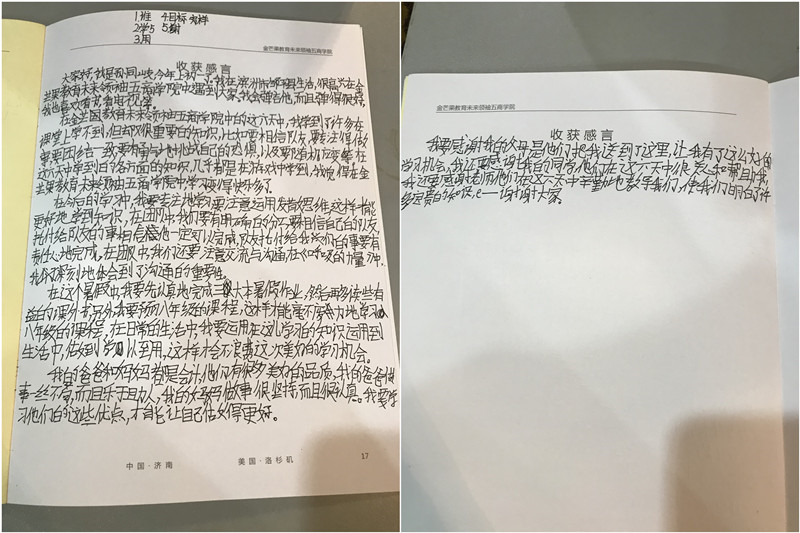 1.班 4目标 怎样
2学5 5.谢
3.用
金芒果教育未来领袖五商学院
收获感言
大家好,我是孙同,今年上初一了,我在滨州市邹平县生活,很高兴在金
芒果教育未来领袖五商学院中遇到大家,我会弹吉他,而且弹得很好,
我也喜欢看书看电视等。
在金芒果教育未来领袖五商学院中的这六天中,我学到了许多在
课堂上学不到,但却又很重要的知识,比如要相信队友,要专注得做
事,要团结一致,要有勇气地挑战自己的恐惧,以及要随机应变等在
这六天中学到的各方面的知识,几乎都是在游戏中学到,我觉得在金
芒果教育未来领袖五商学院中学习变得快乐多了。
在今后的学习中,我要专注地学习要注意运用发散思维这样才能
更好地学到知识,在团队中我们要有明确的分工要相信自己的队友
托付给队友的事相信他一定可以完成,队友托付给我我们的事要有
责任心地完成,在团队中,我们还要注意交流与沟通在《呼吸的力量》中,
我深刻地体会到了沟通的重要性。
在这个暑假中,我要先认真地完成三大本暑假作业,然后再多读些有
益的课外书,另外,我要预习八年级的课程,这样才能毫不费力地学习
八年级的课程,在日常的生活中,我要运用在这儿学习的知识运用到
生活中,做到学以至用,这样才会不浪费这次美好的学习机会。
我的爸爸和妈妈都是会计,他们有很多美好的品质,我的爸爸做
事一丝不苟,而且乐于助人,我的妈妈做事很坚持,而且很认真。我要学
习他们的这些优点,才能让自己做得更好。
中国·济南 美国·洛杉矶 17
金芒果教育未来领袖五商学院
收获感言
我要感谢我的父母,是他们把我送到了这里,让我有了这么好的
学习机会,我还要感谢我的同学他们在这六天中很关心和帮助我,
我还要感谢老师他们在这六天中辛勤地教导我们,使我们明白了许
多宝贵的知识,谢谢大家。